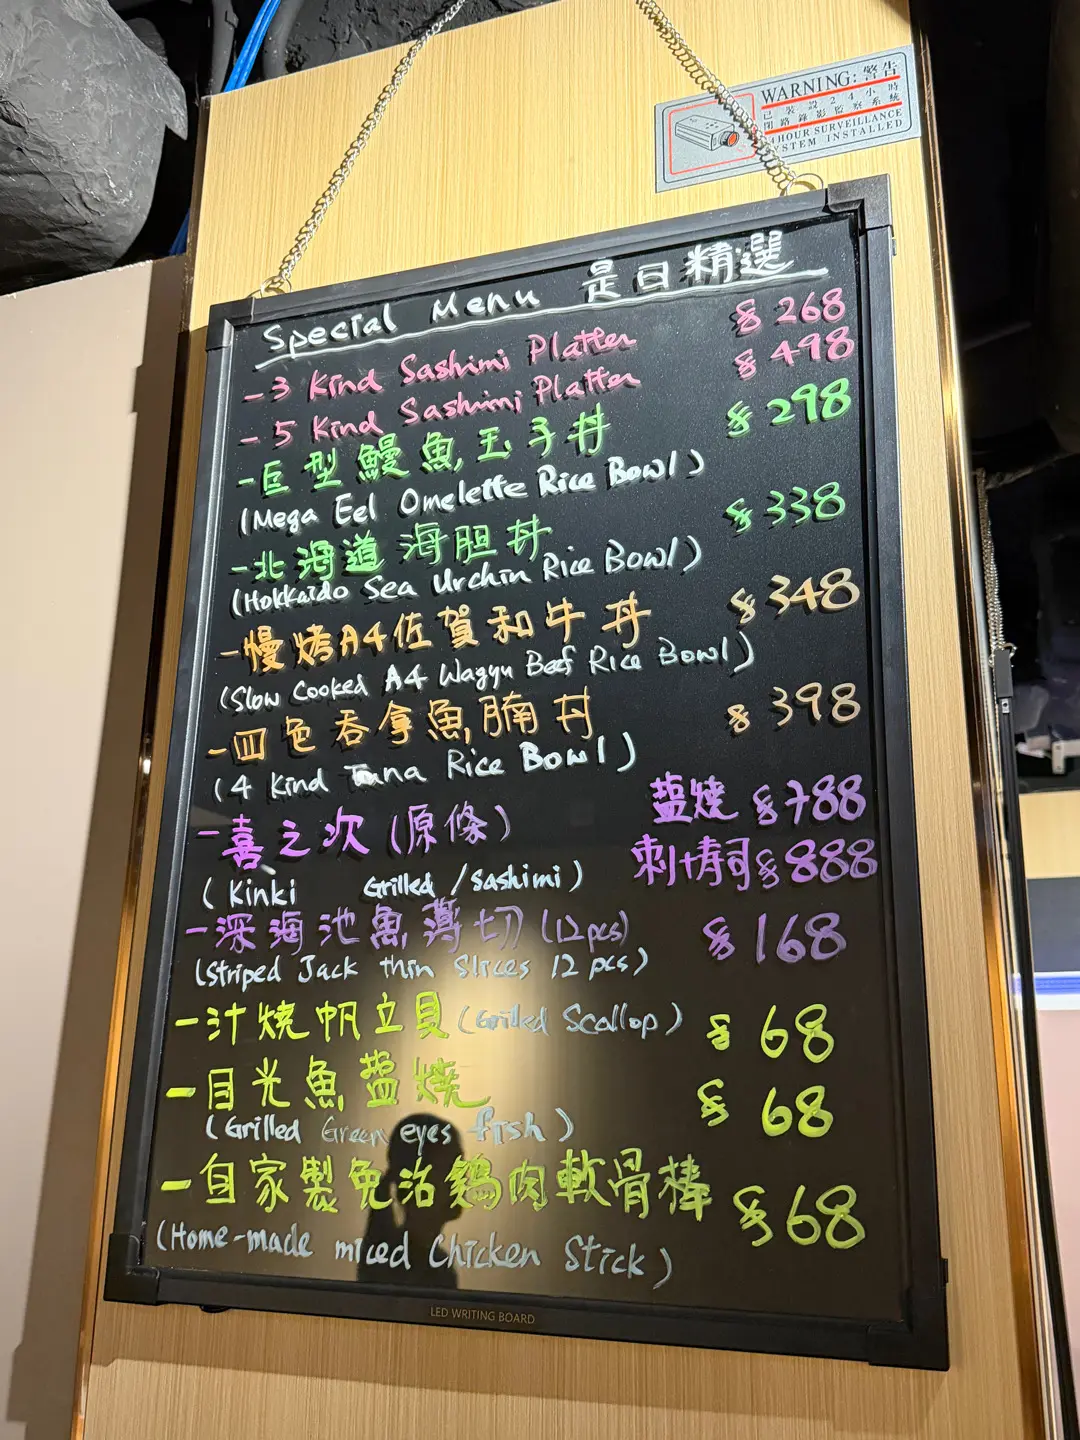 WARNING: 警告
已裝設24小時
閉路錄影監察系統
24 HOUR SURVEILLANCE
SYSTEM INSTALLED
Special Menu 是日精選
- 3 Kind Sashimi Platter $ 268
- 5 Kind Sashimi Platter $ 498
- 巨型鰻魚玉子丼 $ 298
(Mega Eel Omelette Rice Bowl)
- 北海道海胆丼 $ 338
(Hokkaido Sea Urchin Rice Bowl)
- 慢烤A4佐賀和牛丼 $ 348
(Slow Cooked A4 Wagyu Beef Rice Bowl)
- 四色吞拿魚腩丼 $ 398
(4 Kind Tuna Rice Bowl)
- 喜之次 (原條) 盐燒 $ 788
刺身 $ 888
(Kinki Grilled / Sashimi)
- 深海池魚薄切 (12pcs) $ 168
(Striped Jack thin slices 12 pcs)
- 汁燒帆立貝 (Grilled Scallop) $ 68
- 目光魚盐燒 $ 68
(Grilled Green eyes fish)
- 自家製免治鷄肉軟骨棒 $ 68
(Home-made miced Chicken Stick)
LED WRITING BOARD